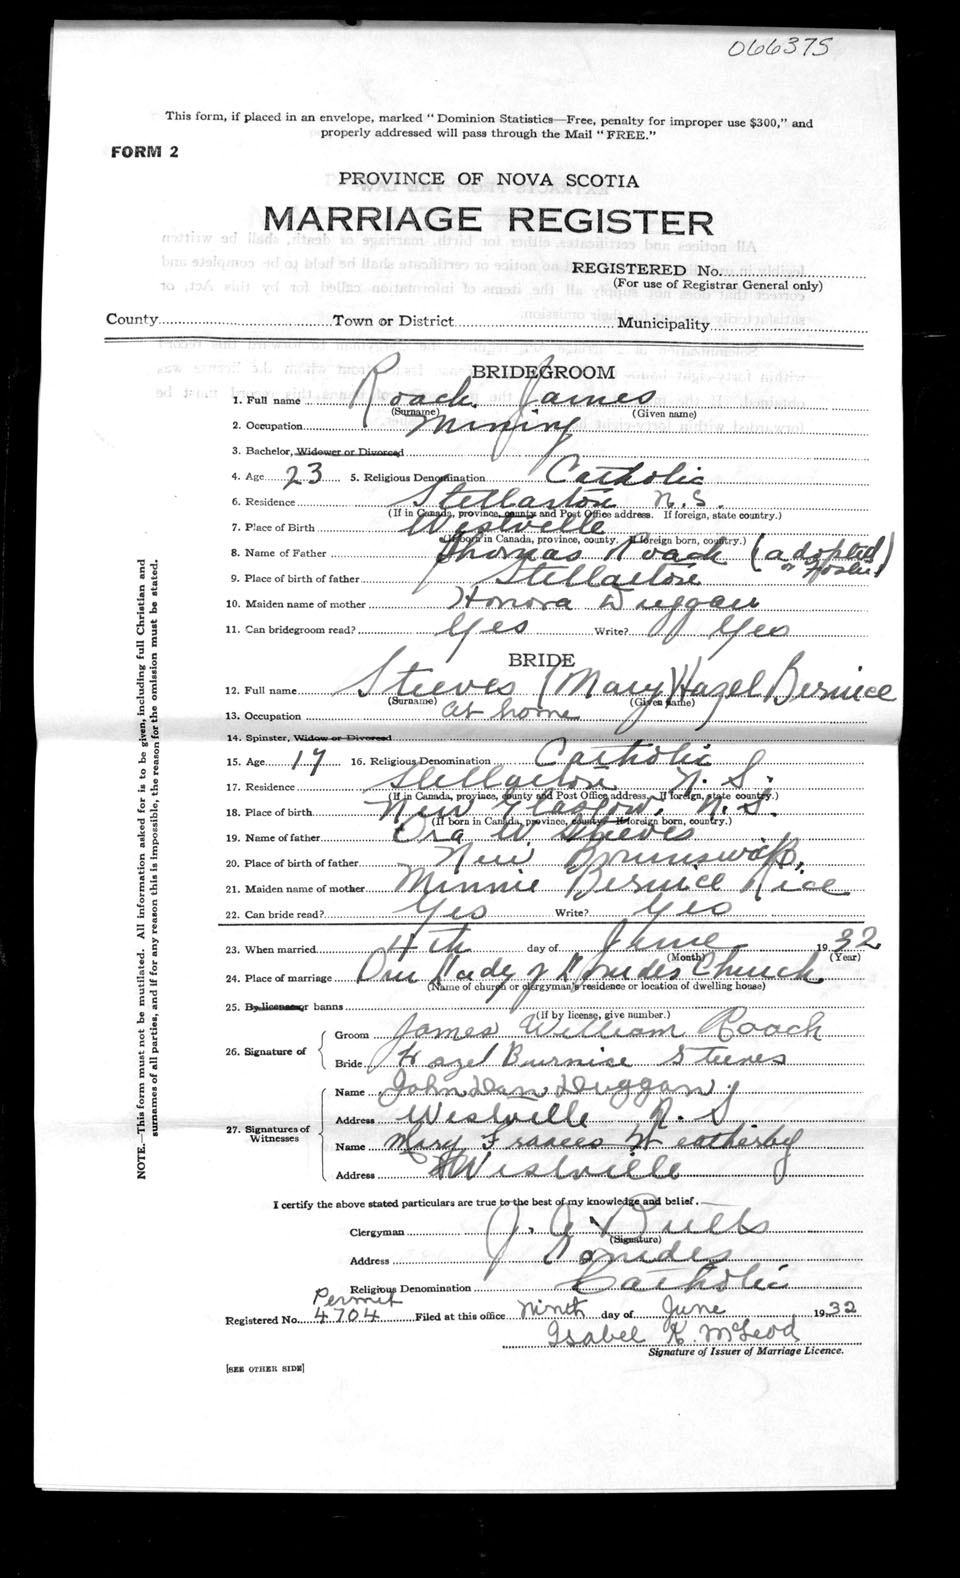 066375
This form, if placed in an envelope, marked “ Dominion Statistics—Free, penalty for improper use $300,” and
properly addressed will pass through the Mail “ FREE.”
FORM 2
PROVINCE OF NOVA SCOTIA
MARRIAGE REGISTER
REGISTERED No.
(For use of Registrar General only)
County Town or District Municipality
BRIDEGROOM
1. Full name Roach James
(Surname) (Given name)
2. Occupation Mining
3. Bachelor, Widower or Divorced
4. Age 23 5. Religious Denomination Catholic
6. Residence Stellarton N.S.
(If in Canada, province, county and Post Office address. If foreign, state country.)
7. Place of Birth Westville
(If born in Canada, province, county. If foreign born, country.)
8. Name of Father Thomas Roach (adopted
or Foster)
9. Place of birth of father Stellarton
10. Maiden name of mother Honora Duggan
11. Can bridegroom read? Yes Write? Yes
BRIDE
12. Full name Steeves (Mary) Hazel Bernice
(Surname) (Given name)
13. Occupation at home
14. Spinster, Widow or Divorced
15. Age 17 16. Religious Denomination Catholic
17. Residence Stellarton N. S.
(If in Canada, province, county and Post Office address. If foreign, state country.)
18. Place of birth New Glasgow, N. S.
(If born in Canada, province, county. If foreign born, country.)
19. Name of father Ora W. Steeves
20. Place of birth of father New Brunswick,
21. Maiden name of mother Minnie Bernice Rice
22. Can bride read? Yes Write? Yes
23. When married 4th day of June 1932
(Month) (Year)
24. Place of marriage Our Lady of Lourdes Church
(Name of church or clergyman's residence or location of dwelling house)
25. By license or banns
(If by license, give number.)
26. Signature of Groom James William Roach
Bride Hazel Burnice Steeves
27. Signatures of Witnesses Name John Dan Duggan
Address Westville N. S
Name Mary Frances Weatherby
Address Westville
I certify the above stated particulars are true to the best of my knowledge and belief.
Clergyman J. A. Butts
(Signature)
Address Lourdes
Religious Denomination Catholic
Permit
Registered No. 4704 Filed at this office Ninth day of June 1932
Isabel K McLeod
Signature of Issuer of Marriage Licence.
[SEE OTHER SIDE]
NOTE.—This form must not be mutilated. All information asked for is to be given, including full Christian and
surnames of all parties, and if for any reason this is impossible, the reason for the omission must be stated.